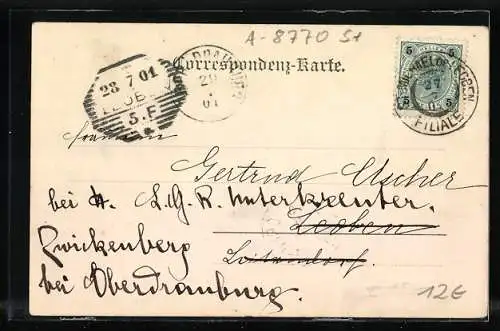 A-8770 St
Correspondenz-Karte.
28 7 01
LEOBEN
5.F
29
01
5 5
5 5
FILIALE
Fräulein
Gertrud Ascher
bei H. L.G.R. Unterkreuter.
Leoben
Zwickenberg
bei Oberdrauburg.
12€